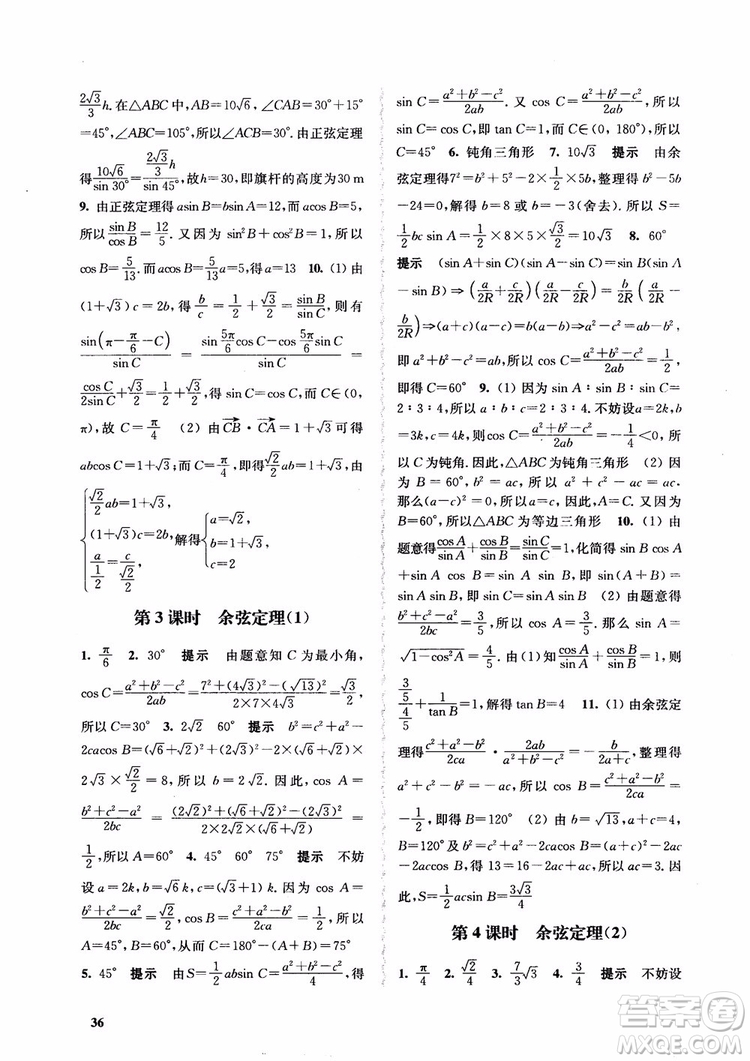 2√3/3 h. 在△ABC 中, AB=10√6, ∠CAB=30°+15°
=45°, ∠ABC=105°, 所以∠ACB=30°. 由正弦定理
得 10√6/sin 30° = (2√3/3 h)/sin 45°, 故 h=30, 即旗杆的高度为 30 m
9. 由正弦定理得 asin B=bsin A=12, 而 acos B=5,
所以 sin B/cos B=12/5. 又因为 sin²B+cos²B=1, 所以
cos B=5/13. 而 acos B=5, 得 a=13 10. (1) 由
(1+√3)c=2b, 得 b/c=1/2+√3/2=sin B/sin C, 则有
sin(π-π/6-C)/sin C=(sin 5π/6 cos C-cos 5π/6 sin C)/sin C=
cos C/2sin C+√3/2=1/2+√3/2, 所以 cos C=sin C, 而 C∈(0,
π), 故 C=π/4 (2) 由CB·CA=1+√3, 可得
abcos C=1+√3, 即得√2/2 ab=1+√3, 由
{√2/2 ab=1+√3, (1+√3)c=2b, a/(1/2)=c/(√2/2) 解得{a=√2, b=1+√3, c=2
第 3 课时 余弦定理(1)
1. π/6 2. 30° 提示 由题意知 C 为最小角,
cos C=(a²+b²-c²)/2ab=(7²+(4√3)²-(√13)²)/(2×7×4√3)=√3/2,
所以 C=30° 3. 2√2 60° 提示 b²=c²+a²-
2cacos B=(√6+√2)²+(2√3)²-2×(√6+√2)×
2√3×√2/2=8, 所以 b=2√2, 因此, cos A=
(b²+c²-a²)/2bc=((2√2)²+(√6+√2)²-(2√3)²)/(2×2√2×(√6+√2))=
1/2, 所以 A=60° 4. 45° 60° 75° 提示 不妨
设 a=2k, b=√6k, c=(√3+1)k, 则 cos A=
(b²+c²-a²)/2bc=√2/2, cos B=(a²+c²-b²)/2ca=1/2, 所以
A=45°, B=60°, 从而 C=180°-(A+B)=75°
5. 45° 提示 由S=1/2 absin C=(a²+b²-c²)/4, 得
sin C=(a²+b²-c²)/2ab. 又 cos C=(a²+b²-c²)/2ab, 所以
sin C=cos C, 即 tan C=1, 而 C∈(0, 180°), 所以
C=45° 6. 钝角三角形 7. 10√3 提示 由余
弦定理7²=b²+5²-2×5b×1/2, 整理得 b²-5b
-24=0, 解得 b=8 或 b=-3 (舍去). 所以 S=
1/2 bcsin A=1/2×8×5×√3/2=10√3 8. 60°
提示 (sin A+sin C)(sin A-sin C)=sin B(sin A
-sin B)⇒(a/2R+c/2R)(a/2R-c/2R)=b/2R(a/2R-
b/2R)⇒(a+c)(a-c)=b(a-b)⇒a²+b²-c²=ab,
即得 C=60° 9. (1) 因为 sin A∶sin B∶sin C=
2∶3∶4, 所以 a∶b∶c=2∶3∶4. 不妨设 a=2k, b=
3k, c=4k, 则 cos C=(a²+b²-c²)/2ab=-1/4<0, 所以
C 为钝角, △ABC 为钝角三角形 (2) 因
为 B=60°, 所以 a²+c²-ac=b²=ac.
那么(a-c)²=0, 所以 a=c, 因此, A=C. 又因为
B=60°, 所以△ABC 为等边三角形 10. (1) 由
题意得cos A/sin A+cos B/sin B=sin C/sin C=1, 化简得 sin Bcos A+
sin Acos B=sin Asin B, 即 sin(A+B)=
sin Asin B, sin C=sin Asin B (2) 由题意得
(b²+c²-a²)/2bc=3/5, 所以 cos A=3/5, 而 sin A=
√(1-cos²A)=4/5. 由(1)知cos A/sin A+cos B/sin B=1, 所以
(3/5)/(4/5)+1/tan B=1, 解得 tan B=4 11. (1) 由余弦定
理得(a²+c²-b²)/2ca·2ab/(a²+b²-c²)=-b/(2a+c), 整理得
a²+c²-b²=-ac, 所以 cos B=(a²+c²-b²)/2ca=-ac/2ca=
-1/2, 即得 B=120° (2) 由 b=√13, a+c=4,
B=120°及 b²=a²+c²-2accos B=(a+c)²-2ac
-2accos B, 即得 13=16-2ac+ac, 所以 ac=3. 因
此, S=1/2 acsin B=3√3/4
第 4 课时 余弦定理(2)
1. π/4 2. √2/4 3. 7/3√3 4. 3/4 提示 不妨设
36
答案圈
MXEQE.COM